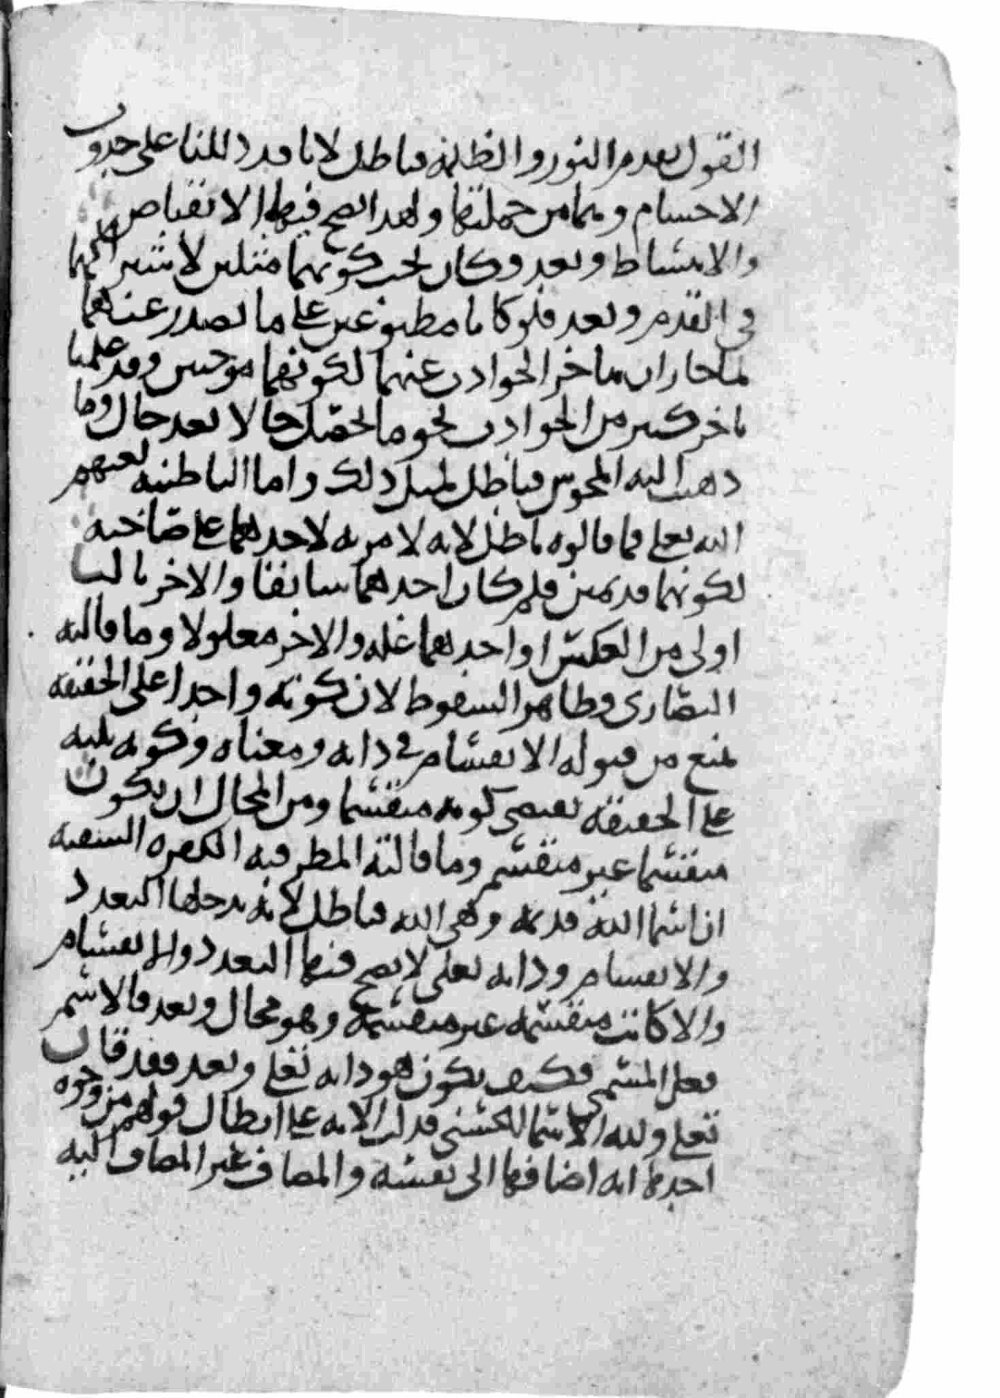 القول بقدم النور والظلمة فباطل لانا قد دللنا على حدوث
الاجسام وهما من جملتها ولهذا يصح فيهما الانقباض
والانبساط وبعد وكان يجب كونهما مثلين لاشتراكهما
في القدم وبعد فلو كانا مطبوعين على ما يصدر عنهما
لما جاز ان يتاخر الحوادث عنهما لكونهما موجبين وقد علمنا
تاخر كثير من الحوادث نحو ما يحصل حالا بعد حال وما
ذهب اليه المجوس فباطل لمثل ذلك واما الباطنية لعنهم
الله تعلى فما قالوه باطل لانه لا مزية لاحدهما على صاحبه
لكونهما قديمين فلم كان احدهما سابقا والاخر تاليا
اولى من العكس او احدهما علة والاخر معلولا وما قالته
النصارى فظاهر السقوط لان كونه واحدا على الحقيقة
يمنع من قبوله الانقسام في ذاته ومعناه وكونه ثلثة
على الحقيقة يقتضي كونه منقسما ومن المحال ان يكون
منقسما غير منقسم وما قالته المطرفية الكفرة الشقية
ان اسما الله قديمة وهي الله فباطل لانه يدخلها التعدد
والانقسام وذاته تعلى لا يصح فيها التعدد والانقسام
والا كانت منقسمة غير منقسمة وهو محال وبعد فالاسم
فعل المسمي فكيف يكون هو ذاته تعلى وبعد فقد قال
تعلى ولله الاسما الحسنى فدلت الاية على ابطال قولهم من وجوه
احدها انه اضافها الى نفسه والمضاف غير المضاف اليه